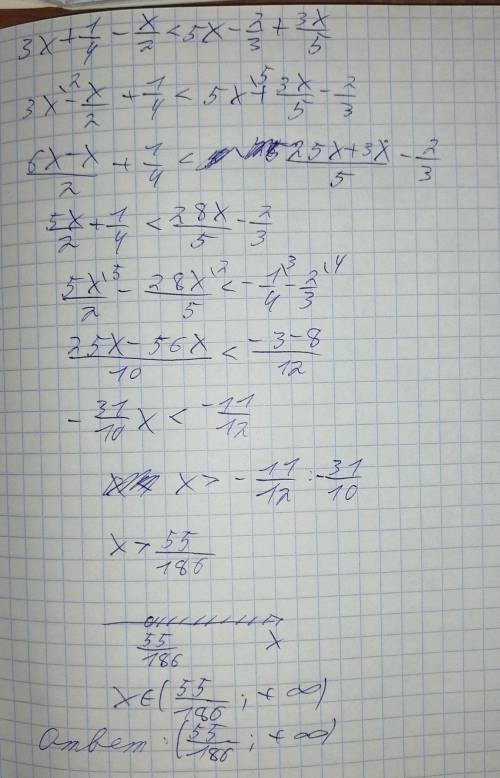 3x + 1/4 - x/2 < 5x - 2/3 + 3x/5
3x\2 - x/2 + 1/4 < 5x\5 + 3x/5 - 2/3
6x-x/2 + 1/4 < 25x+3x/5 - 2/3
5x/2 + 1/4 < 28x/5 - 2/3
5x\5/2 - 28x\2/5 < - 1\3/4 - 2\4/3
25x - 56x/10 < -3-8/12
- 31/10 x < -11/12
x > - 11/12 : - 31/10
x > 55/186
55/186 x
x ∈ (55/186 ; + ∞)
Ответ: (55/186 ; + ∞)